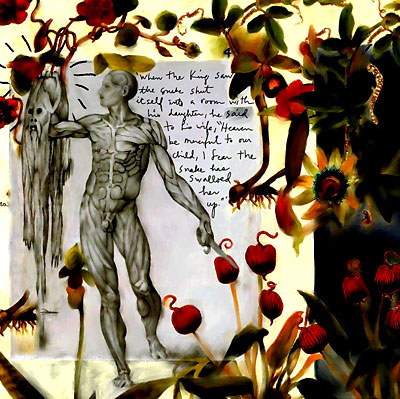 "When the King saw
the snake shut
itself into a room with
his daughter, he said
to his wife, "Heaven
be merciful to our
child, I fear the
snake has
swallowed
her
up."